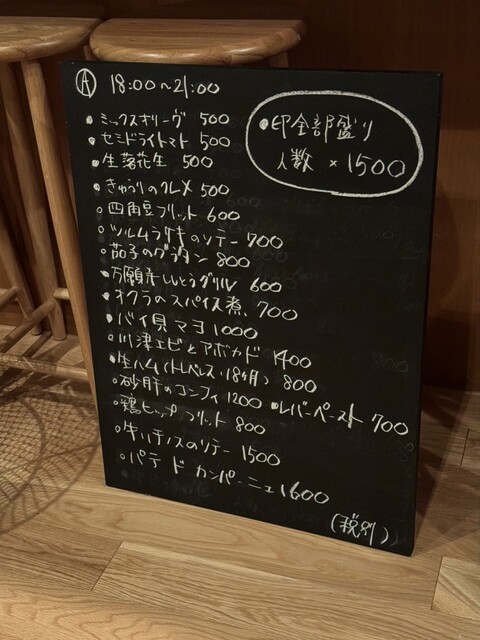 Ⓐ 18:00〜21:00
●印全部盛り
人数 × 1500
●ミックスオリーヴ 500
●セミドライトマト 500
●生落花生 500
●きゅうりのクレメ 500
○四角豆フリット 600
○ツルムラサキのソテー 700
○茄子のグラタン 800
●万願寺ししとうグリル 600
●オクラのスパイス煮 700
●バイ貝マヨ 1000
○川津エビとアボカド 1400
●生ハム(トレベレス・18ヶ月) 800
○砂肝のコンフィ 1200 ●レバーペースト 700
○鶏ヒップフリット 800
○牛ハチノスのソテー 1500
○パテ ド カンパーニュ 1600
(税別)